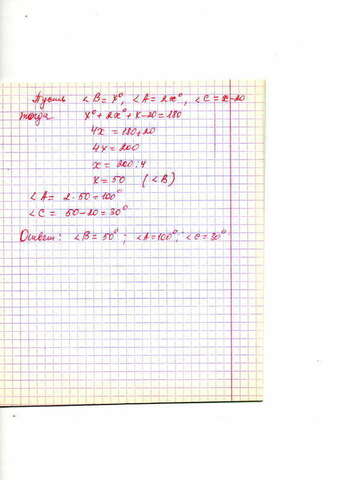 Пусть ∠B = x°, ∠A = 2x°, ∠C = x-20
тогда x° + 2x° + x - 20 = 180
4x = 180+20
4x = 200
x = 200:4
x = 50 (∠B)
∠A = 2·50 = 100°
∠C = 50-20 = 30°
Ответ: ∠B = 50°; ∠A=100°; ∠C = 30°